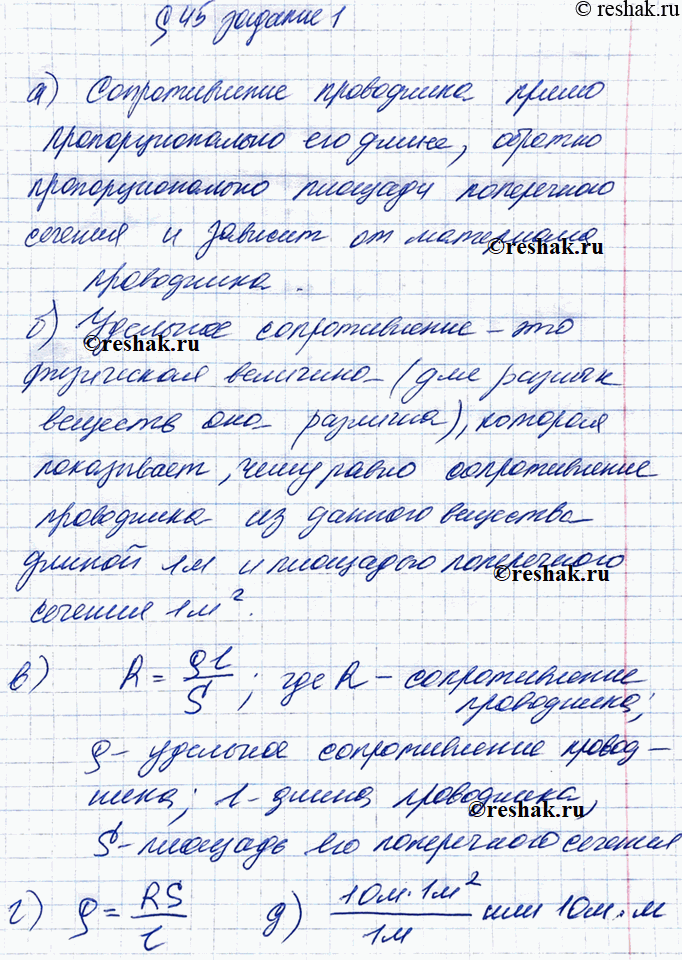 © reshak.ru
§ 45 задание 1
а) Сопротивление проводника прямо
пропорционально его длине, обратно
пропорционально площади поперечного
сечения и зависит от материала
©reshak.ru
проводника.
б) Удельное сопротивление – это
©reshak.ru
физическая величина (для разных
веществ она различна), которая
показывает, чему равно сопротивление
проводника из данного вещества
длиной 1м и площадью поперечного
©reshak.ru
сечения 1м².
в) R = ρl/S; где R – сопротивление
проводника;
ρ – удельное сопротивление провод-
ника; l – длина проводника,
©reshak.ru
S – площадь его поперечного сечения
г) ρ = RS/l д) 1Ом·1м²/1м или 1Ом·м